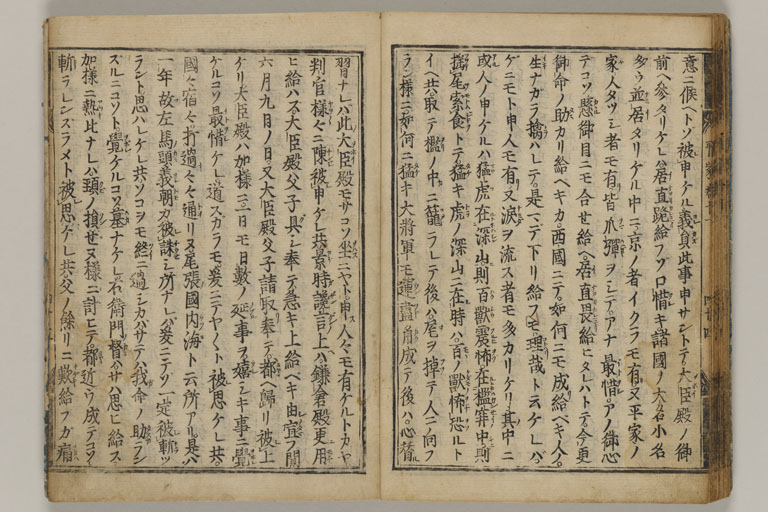 意ニ候ヘトソ被申ケル義員此事申サントテ大臣殿ノ御
前ヘ参タリケレハ居直跪給フソ口惜キ諸國ノ大名小名
多ウ並居タリケル中ニ京ノ者イクラモ有又平家ノ
家人タツシ者モ有皆爪彈ヲシテアナ最惜アノ御心
テコソ懸御目ニモ合セ給ヘ居直畏給ヒタレハトテ今更
御命ノ助カリ給ヘキカ西國ニテ如何ニモ成給ヘキ人ノ
生ナカラ擒ハレテ是ニテ下リ給フモ理哉ト云ケレハ
ケニモト申人モ有又涙ヲ流ス者モ多カリケリ其中ニ
或人ノ申ケルハ猛虎在深山則百獸震怖在檻穽中則
搖尾索食トテ猛キ虎ノ深山ニ在時ハ百ノ獸怖恐ルト
イヘ共取テ檻ノ中ニ籠ラレテ後ハ尾ヲ掉テ人ニ向フ
ラン様ニ如何ニ猛キ大將軍モ運盡角成テ後ハ心替
習ナレハ此大臣殿モサコソ坐ニヤト申人々モ有ケルトカヤ
判官様々ニ陳被申ケレ共景時讒言上ハ鎌倉殿更用
ヒ給ハス大臣殿父子具シ奉テ急キ上給ヘキ由宣フ間
六月九日ノ日又大臣殿父子請取奉テ都ヘ歸リ被上
ケリ大臣殿ハ加様ニ三日モ日數ノ延事ヲ嬉シキ事ニ覺
ケルコソ最惜ケレ道スカラモ爰ニテヤ々ト被思ケレ共
國々宿々打過々々通リヌ尾張國内海ト云所アリ是ハ
一年故左馬頭義朝カ被誅シ所ナレハ爰ニテソ一定被斬ツ
ラント思ハレケレ共ソコヲモ終ニ過シカハサテハ我命ノ助ラン
スルニコソト覺ケルコソ墓ナケレ右衛門督ハサハ思ヒ給ハス
加様ニ熱此ナレハ頸ノ損セヌ様ニ計ヒテ都近ウ成テコソ
斬ラレンスラメト被思ケレ共父ノ餘リニ歎給フカ痛